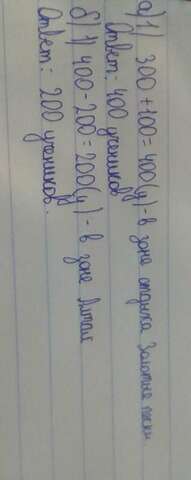 а) 1) 300 + 100 = 400 (у) - в зоне отдыха Золотые пески.
Ответ: 400 учеников
б) 1) 400 - 200 = 200 (у) - в зоне Алтай
Ответ: 200 учеников.